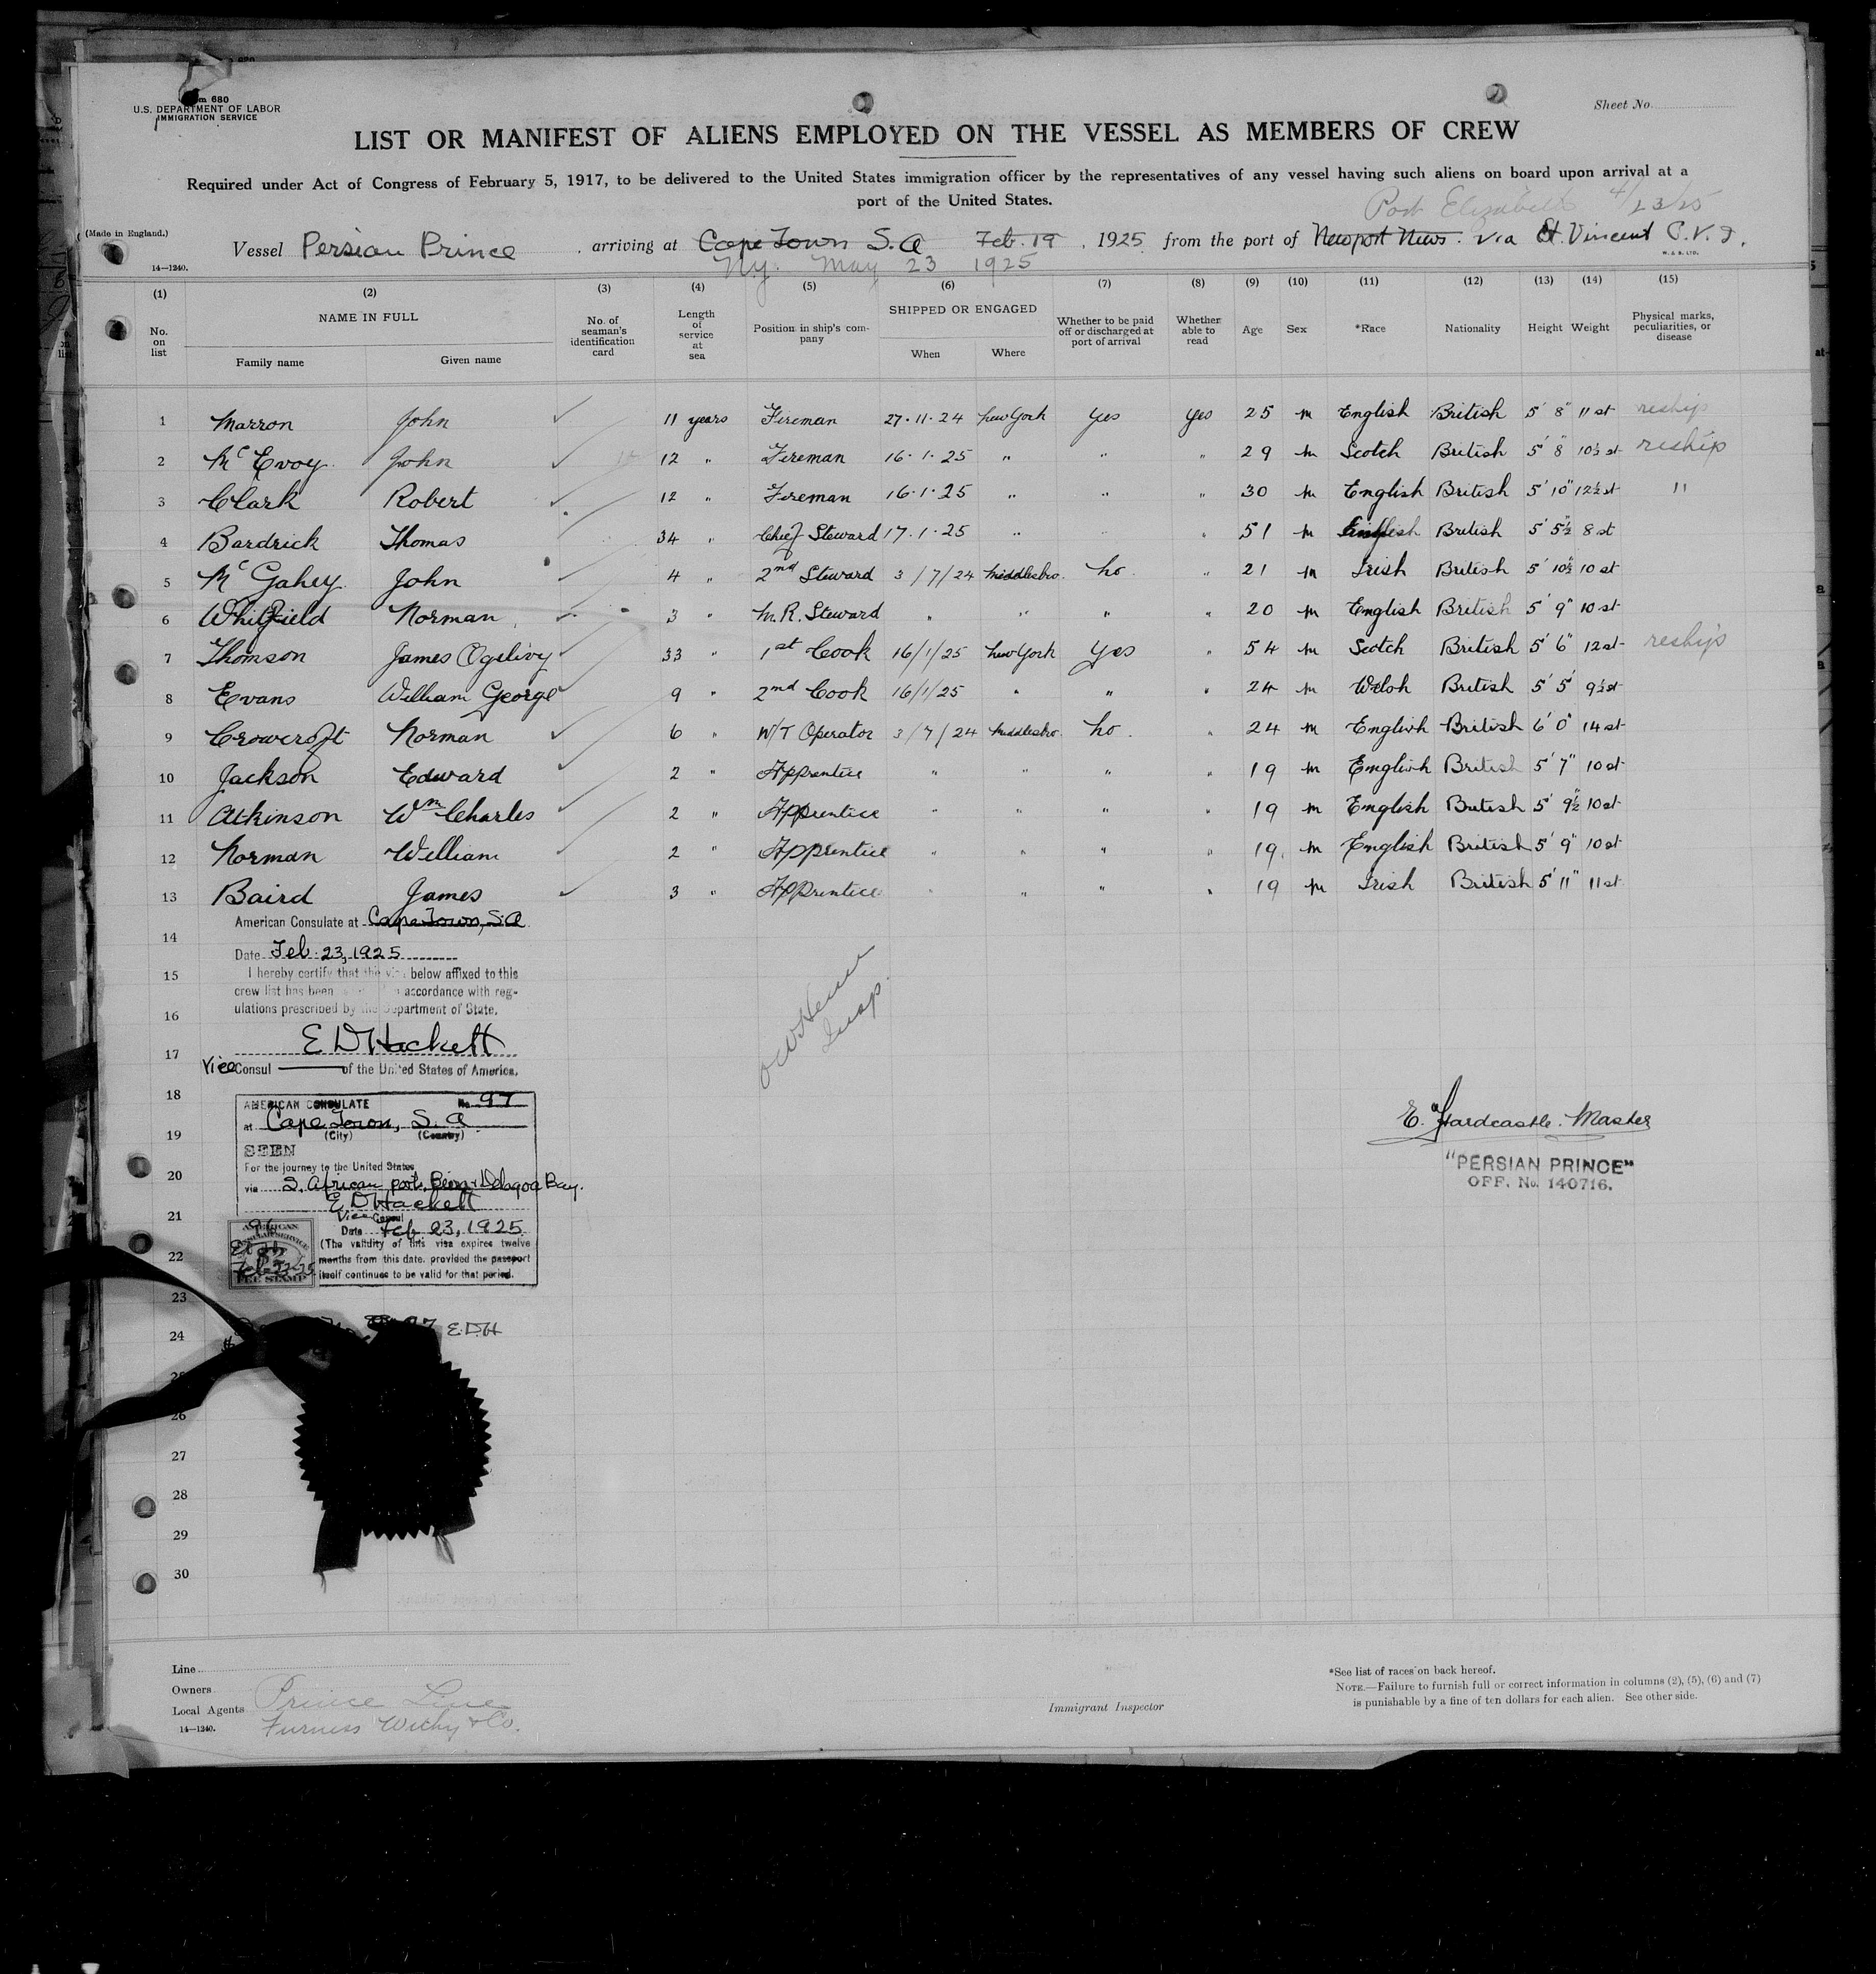 680
U.S. DEPARTMENT OF LABOR
IMMIGRATION SERVICE
Sheet No.
LIST OR MANIFEST OF ALIENS EMPLOYED ON THE VESSEL AS MEMBERS OF CREW
Required under Act of Congress of February 5, 1917, to be delivered to the United States immigration officer by the representatives of any vessel having such aliens on board upon arrival at a
port of the United States.
Port Elizabeth 4/23/25
(Made in England.)
Vessel Persian Prince, arriving at Cape Town S.A Feb. 19, 1925 from the port of Newport News. via St. Vincent C.V.I.
W. & S. LTD.
14—1240.
Ny. May 23 1925
(1) (2) (3) (4) (5) (6) (7) (8) (9) (10) (11) (12) (13) (14) (15)
No. on list NAME IN FULL Family name Given name No. of seaman's identification card Length of service at sea Position in ship's company SHIPPED OR ENGAGED When Where Whether to be paid off or discharged at port of arrival Whether able to read Age Sex *Race Nationality Height Weight Physical marks, peculiarities, or disease
1 Marron John 11 years Fireman 27.11.24 New York Yes Yes 25 m English British 5' 8" 11 st reship
2 McEvoy John 12 " Fireman 16.1.25 " " " 29 m Scotch British 5' 8" 10½ st reship
3 Clark Robert 12 " Fireman 16.1.25 " " " 30 m English British 5' 10" 12½ st "
4 Bardrick Thomas 34 " Chief Steward 17.1.25 " " " 51 m English British 5' 5½" 8 st
5 McGahey John 4 " 2nd Steward 3/7/24 Middlesbro. No. " 21 m Irish British 5' 10½" 10 st
6 Whitfield Norman 3 " M.R. Steward " " " " 20 m English British 5' 9" 10 st
7 Thomson James Ogslivy 33 " 1st Cook 16/1/25 New York Yes " 54 m Scotch British 5' 6" 12 st reship
8 Evans William George 9 " 2nd Cook 16/1/25 " " " 24 m Welsh British 5' 5" 9½ st
9 Crowcroft Norman 6 " W/T Operator 3/7/24 Middlesbro. No. " 24 m English British 6' 0" 14 st
10 Jackson Edward 2 " Apprentice " " " " 19 m English British 5' 7" 10 st
11 Atkinson Wm Charles 2 " Apprentice " " " " 19 m English British 5' 9½" 10 st
12 Norman William 2 " Apprentice " " " " 19 m English British 5' 9" 10 st
13 Baird James 3 " Apprentice " " " " 19 m Irish British 5' 11" 11 st
American Consulate at Cape Town, S.A
14
Date Feb. 23, 1925
15
I hereby certify that the visa below affixed to this
crew list has been accordance with reg-
ulations prescribed by the Department of State.
16
E D Hackett
17
Vice Consul of the United States of America.
Insp.
18
AMERICAN CONSULATE No. 97
at Cape Town, S. A
(City) (Country)
19
SEEN
For the journey to the United States
20
via S. African ports, Beira & Delagoa Bay.
E D Hackett
Vice Consul
21
Date Feb 23, 1925
(The validity of this visa expires twelve
22
months from this date. provided the passport
itself continues to be valid for that period.
AMERICAN
FEE STAMP
E. Hardcastle. Master
"PERSIAN PRINCE"
OFF. No. 140716.
23
24
97 E.D.H
26
27
28
29
30
Line
Owners
Local Agents
Prince Line
Furness Withy & Co.
14—1240.
Immigrant Inspector
*See list of races on back hereof.
NOTE.—Failure to furnish full or correct information in columns (2), (5), (6) and (7)
is punishable by a fine of ten dollars for each alien. See other side.